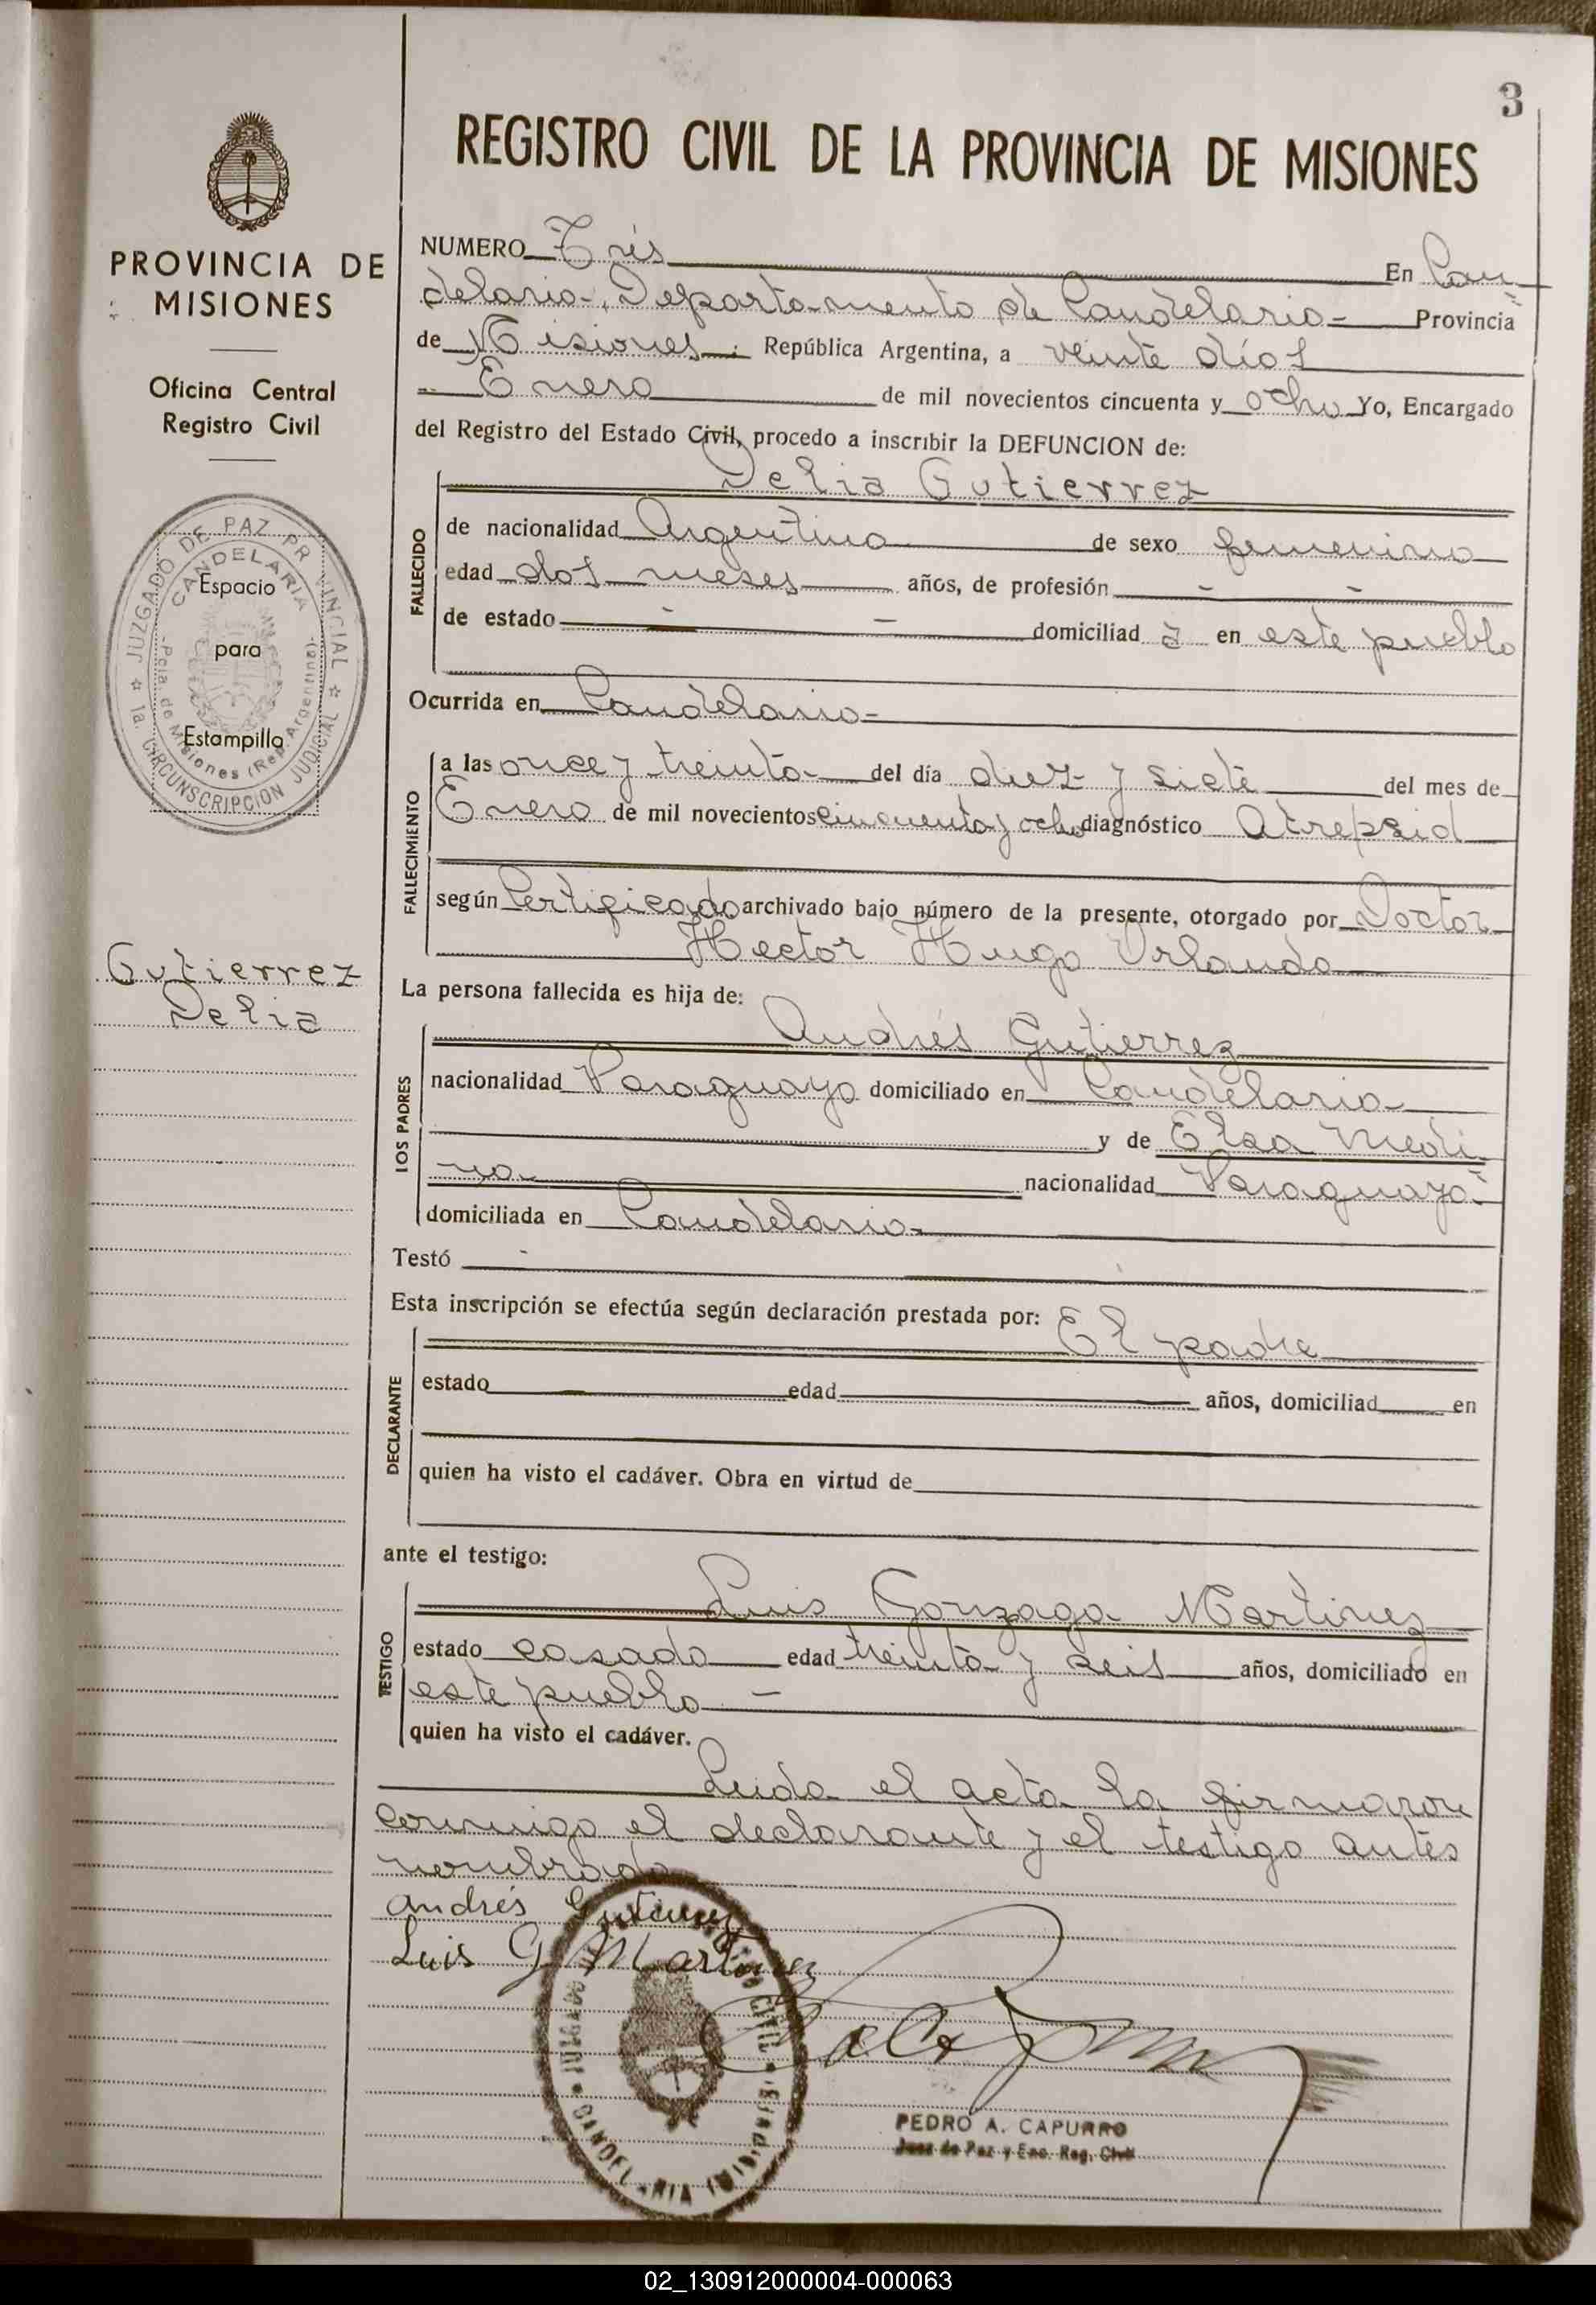 3
REGISTRO CIVIL DE LA PROVINCIA DE MISIONES
PROVINCIA DE
MISIONES
Oficina Central
Registro Civil
JUZGADO DE PAZ PR VINCIAL
CANDELARIA
Pcia. de Misiones (Rep. Argentina)
1a. CIRCUNSCRIPCION JUDICIAL
Espacio
para
Estampilla
Gutierrez
Delia
NUMERO Trés En Can-
delaria, Departamento de Candelaria Provincia
de Misiones República Argentina, a veinte días
Enero de mil novecientos cincuenta y ocho Yo, Encargado
del Registro del Estado Civil, procedo a inscribir la DEFUNCION de:
Delia Gutierrez
FALLECIDO
de nacionalidad Argentina de sexo femenino
edad dos meses años, de profesión - -
de estado - - domiciliad a en este pueblo
Ocurrida en Candelaria
FALLECIMIENTO
a las once y treinta del día diez y siete del mes de
Enero de mil novecientos cincuenta y ocho diagnóstico Atrepsid
según Certificado archivado bajo número de la presente, otorgado por Doctor
Hector Hugo Orlando
La persona fallecida es hija de:
LOS PADRES
Andrés Gutierrez
nacionalidad Paraguayo domiciliado en Candelaria
y de Elsa Medi-
na nacionalidad Paraguaya
domiciliada en Candelaria
Testó -
Esta inscripción se efectúa según declaración prestada por:
El padre
DECLARANTE
estado edad años, domiciliad en
quien ha visto el cadáver. Obra en virtud de
ante el testigo:
TESTIGO
Luis Gonzaga Martinez
estado casado edad treinta y seis años, domiciliado en
este pueblo -
quien ha visto el cadáver.
Leida el acta la firmaron
conmigo el declarante y el testigo antes
nombrado
Andrés Gutierrez
Luis G Martinez
PEDRO A. CAPURRO
Juez de Paz y Enc. Reg. Civil
02_130912000004-000063